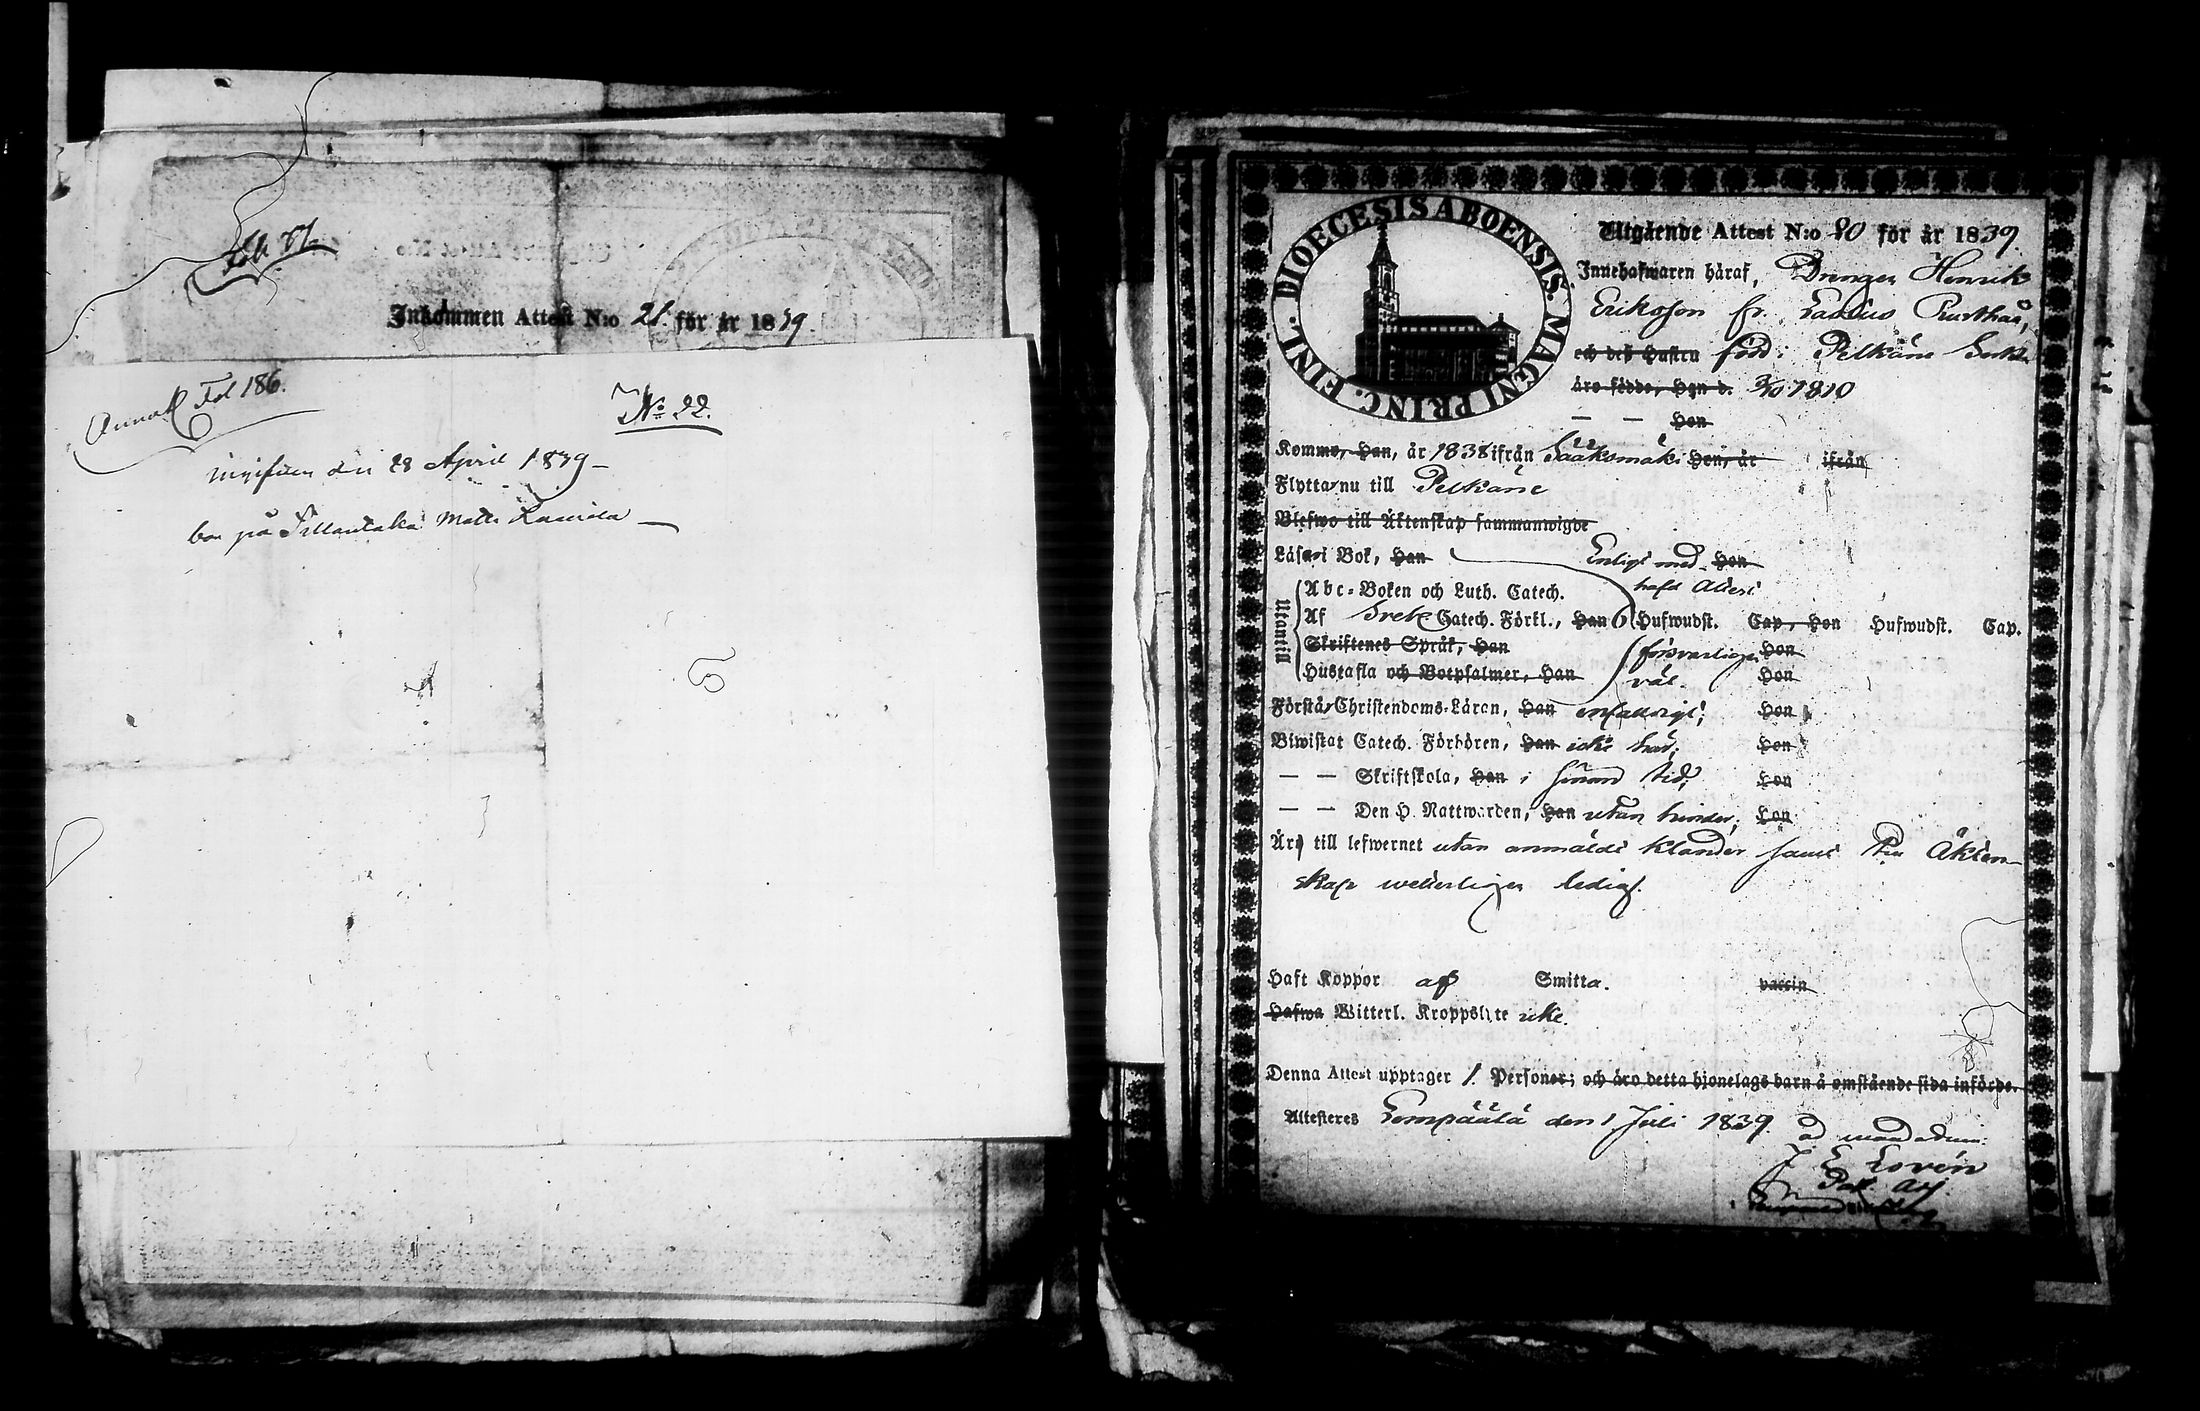 Fol. 81.
Inkommen Attest N:o 21. för år 1839.
Fol 186.
No 22.
den 28 April 1839 –
på Matts
DIOECESIS ABOENSIS. MAGNI PRINC. FINL.
Utgående Attest N:o 20 för år 1839.
Innehafwaren häraf, Drengen Henrik
Eriksson fr.
och dess Hustru född i Pelkäne
äro födde, Han d. 1810
— — Hon
Komme, Han, år 1838 ifrån Sääksmäki Hon, år ifrån
Flytta nu till Pelkäne
Blefwo till Äktenskap sammanwigde
Läsa i Bok, Han Enligt med Hon
haft Attest
Utantill
Abc-Boken och Luth. Catech.
Af Catech. Förkl., Han 6 Hufwudst. Cap, Hon Hufwudst. Cap.
Skriftenes Språk, Han försvarligen Hon
Hustafla och Botpsalmer, Han väl. Hon
Förstå Christendoms-Läran, Han enfaldigt; Hon
Biwistat Catech. Förhören, Han icke här; Hon
— — Skriftskola, Han i sinom tid; Hon
— — Den H. Nattwarden, Han utan hinder; Hon
Äro till lefwernet utan anmäldt klander samt till Äkten-
skap wetterligen ledig.
Haft Koppor af Smitta. vaccin
Hafwa Witterl. Kroppslyte icke.
Denna Attest upptager 1. Personer; och äro detta hjonelags barn å omstående sida införde.
Attesteres Lempäälä den 1 Juli 1839. ad mandatum:
J E Lovén